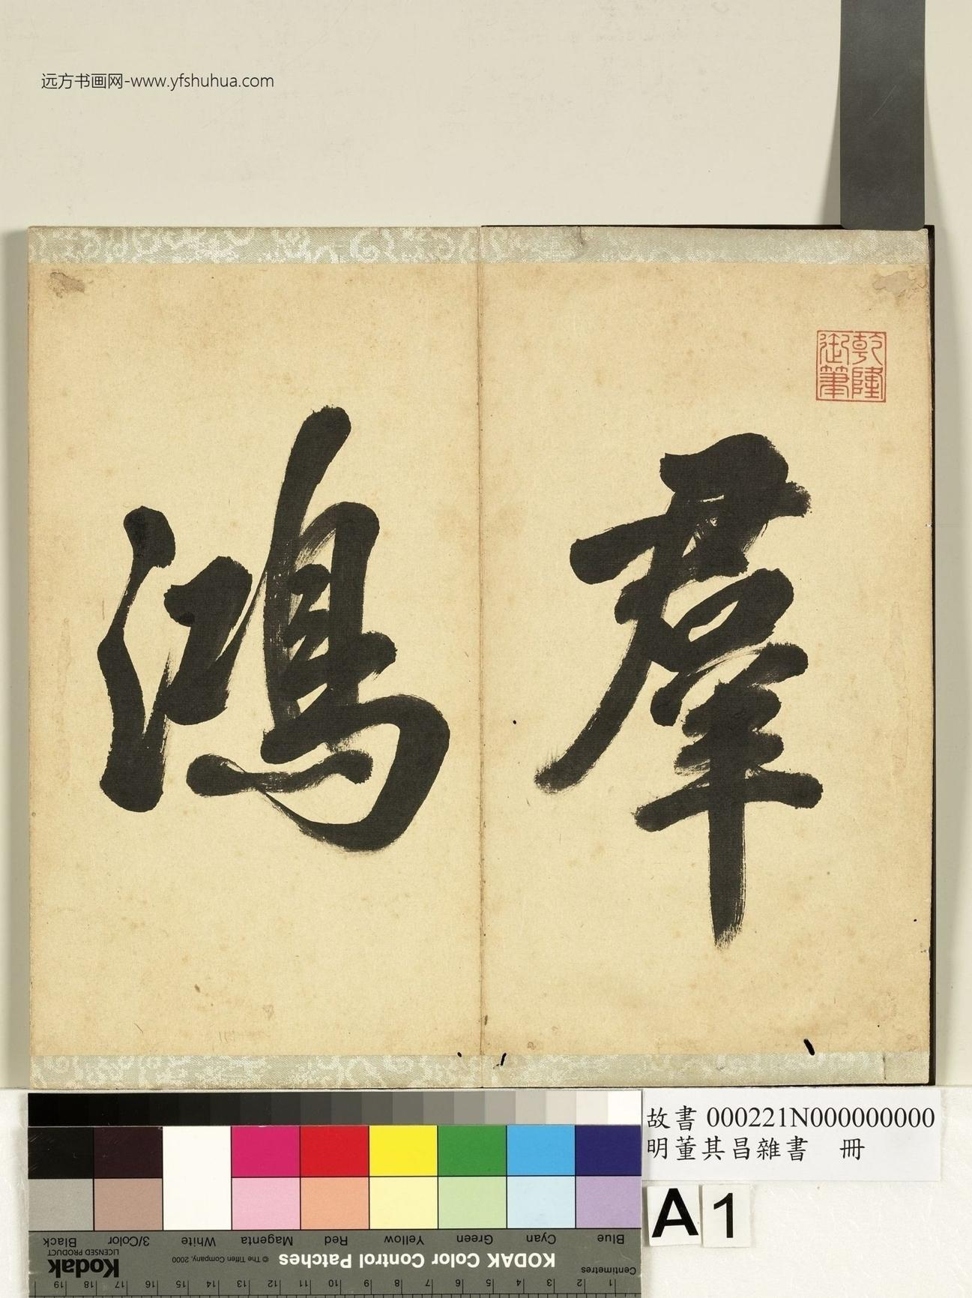 远方书画网-www.yfshuhua.com
乾隆
御筆
羣
鴻
故書 000221N000000000
明董其昌雜書 冊
A 1
Blue Cyan Green Yellow Red Magenta White 3/Color Black
KODAK Color Control Patches
© The Tiffen Company, 2000
Kodak
LICENSED PRODUCT
Centimetres
1 2 3 4 5 6 7 8 9 10 11 12 13 14 15 16 17 18 19